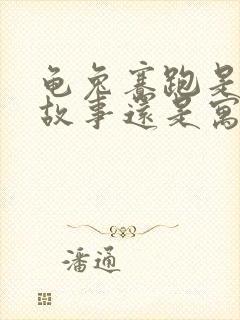 龟兔赛跑是
故事還是寓
潘通